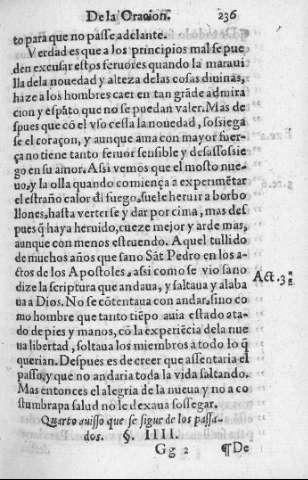 De la Oracion. 236
to para que no passe adelante.
Verdad es que a los principios mal se pue
den excusar estos feruores quando la maraui
lla de la nouedad y alteza de las cosas diuinas,
haze a los hombres caer en tan grãde admira
cion y espãto que no se puedan valer. Mas de
spues que cõ el vso cessa la nouedad, sossiega
se el coraçon, y aunque ama con mayor fuer-
ça no tiene tanto feruor sensible y desassossie
go en su amor. Assi vemos que el mosto nue-
uo, y la olla quando comiença a experimẽtar
el estraño calor dl fuego, suele heruir a borbo
llones, hasta verterse y dar por cima, mas des
pues q̃ haya heruido, cueze mejor y arde mas,
aunque con menos estruendo. A quel tullido
de muchos años que sano Sãt Pedro en los a-
ctos de los Apostoles, assi como se vio sano
dize la scriptura que andaua, y saltaua y alaba
ua a Dios. No se cõtentaua con andar, sino co
mo hombre que tanto tiẽpo auia estado ata-
do de pies y manos, cõ la experiẽcia dela nue
ua libertad, soltaua los miembros a todo lo q̃
querian. Despues es de creer que assentaria el
passo, y que no andaria toda la vida saltando.
Mas entonces el alegria de la nueua y no a co
stumbrapa salud no le dexaua sossegar.
Act. 3
Quarto auisso que se sigue de los passa-
dos. §. IIII.
Gg 2 ¶De